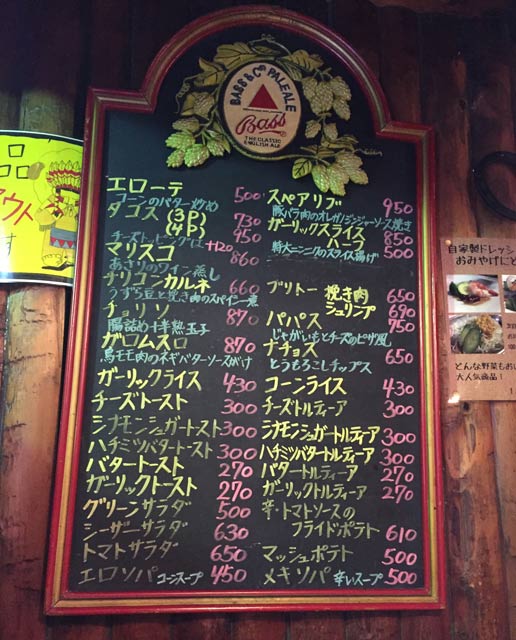 BASS & Co'S PALE ALE
Bass
THE CLASSIC ENGLISH ALE
エローテ 500
コーンのバター炒め
タコス (3P) 730
(4P) 950
チーズトッピングは +120
マリスコ 860
あさりのワイン蒸し
チリコンカルネ 660
うずら豆と挽き肉のスペイン煮
チョリソ 870
腸詰め+半熟玉子
ガロムスロ 870
鳥モモ肉のネギバターソースがけ
ガーリックライス 430
チーズトースト 300
シナモンシュガートースト 300
ハチミツバタートースト 300
バタートースト 270
ガーリックトースト 270
グリーンサラダ 500
シーザーサラダ 630
トマトサラダ 650
エロソパ コーンスープ 450
スペアリブ 950
豚バラ肉のオレガノジンジャーソース焼き
ガーリックスライス 850
ハーフ 500
特大ニンニクのスライス揚げ
ブリトー 挽き肉 650
シュリンプ 690
パパス 750
じゃがいもとチーズのピザ風
ナチョス 650
とうもろこしチップス
コーンライス 430
チーズトルティーア 300
シナモンシュガートルティーア 300
ハチミツバタートルティーア 300
バタートルティーア 270
ガーリックトルティーア 270
辛・トマトソースの
フライドポテト 610
マッシュポテト 500
メキソパ 辛いスープ 500
自家製ドレッシ
おみやげにど
どんな野菜もおい
大人気商品！